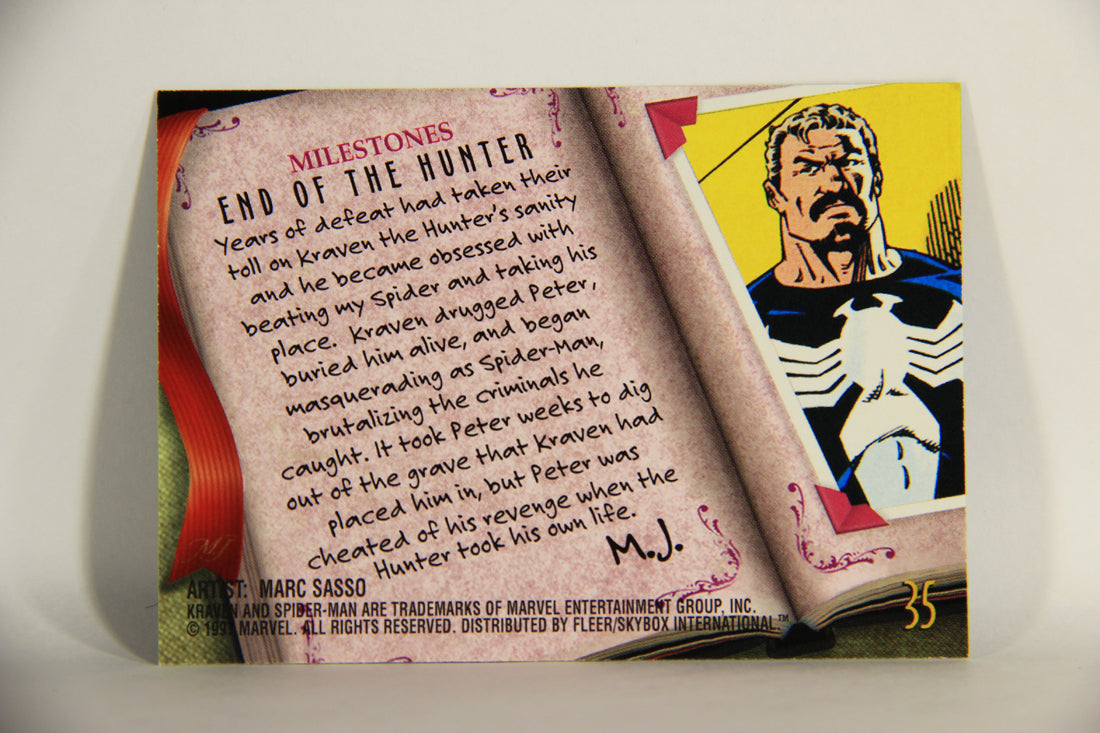 MILESTONES
END OF THE HUNTER
Years of defeat had taken their
toll on Kraven the Hunter's sanity
and he became obsessed with
beating my Spider and taking his
place. Kraven drugged Peter,
buried him alive, and began
masquerading as Spider-Man,
brutalizing the criminals he
caught. It took Peter weeks to dig
out of the grave that Kraven had
placed him in, but Peter was
cheated of his revenge when the
Hunter took his own life.
M.J.
MJ
ARTIST: MARC SASSO
KRAVEN AND SPIDER-MAN ARE TRADEMARKS OF MARVEL ENTERTAINMENT GROUP, INC.
© 1997 MARVEL. ALL RIGHTS RESERVED. DISTRIBUTED BY FLEER/SKYBOX INTERNATIONAL.™
35